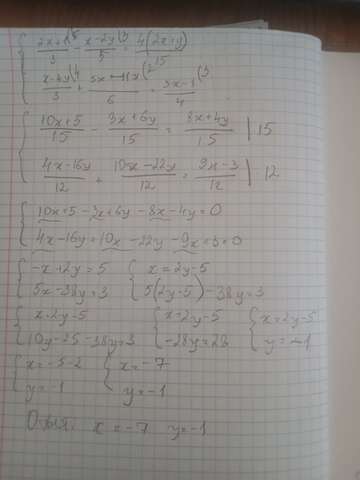 { (2x+1)/3 \5 - (x-2y)/5 \3 = 4(2x+y)/15
{ (x-4y)/3 \4 + (5x-11y)/6 \2 = (3x-1)/4 \3
{ (10x+5)/15 - (3x+6y)/15 = (8x+4y)/15 | 15
{ (4x-16y)/12 + (10x-22y)/12 = (9x-3)/12 | 12
{ 10x+5-3x+6y-8x-4y=0
{ 4x-16y+10x-22y-9x+3=0
{ -x+2y=5 { x=2y-5
{ 5x-38y=3 { 5(2y-5)-38y=3
{ x=2y-5 { x=2y-5 { x=2y-5
{ 10y-25-38y=3 { -28y=28 { y=-1
{ x=-5-2 { x=-7
{ y=-1 { y=-1
Ответ: x=-7 y=-1